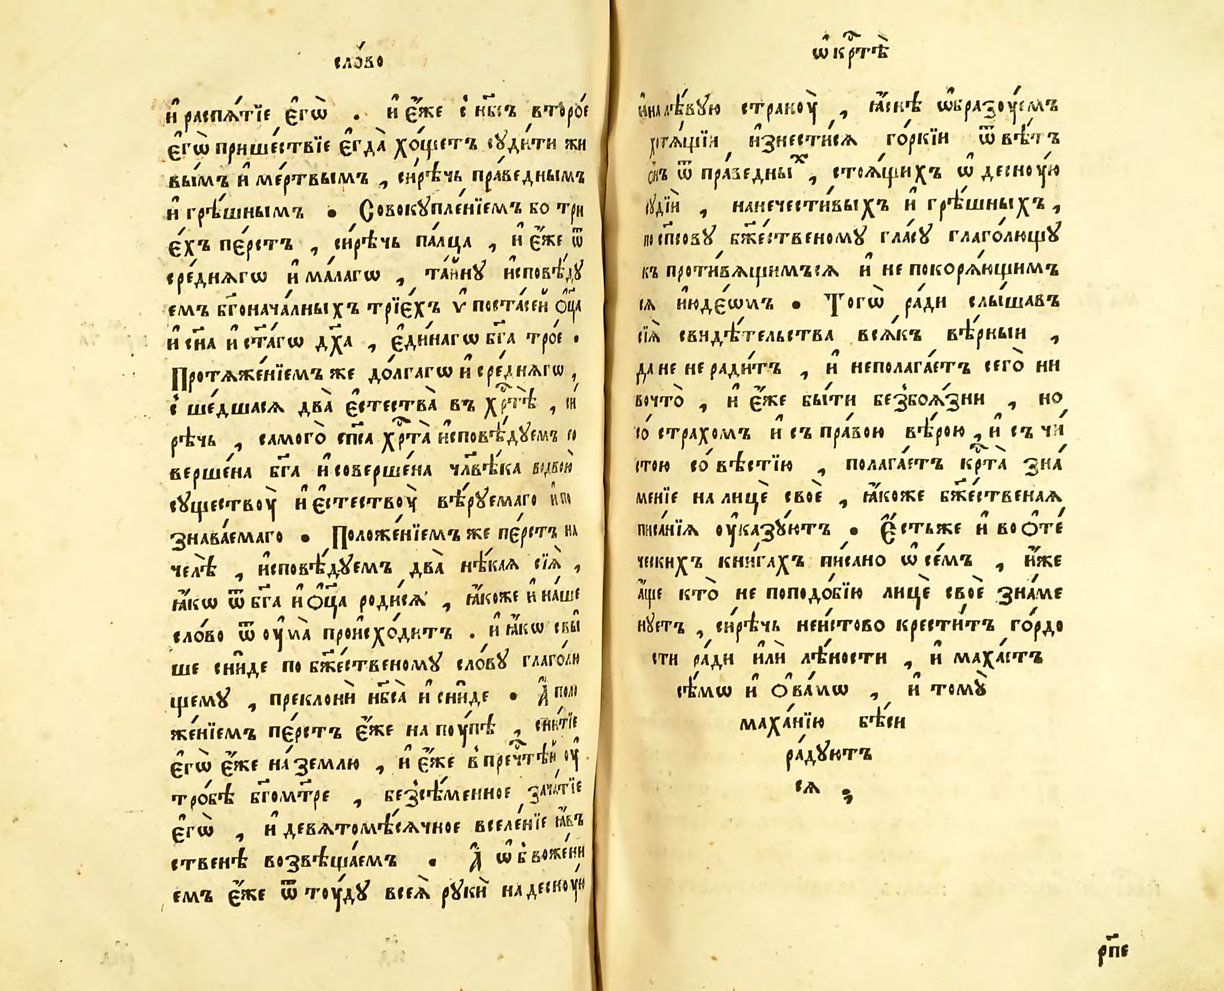 сло́во
и҆ распѧ́тїе є҆гѡ̀ . и҆ є҆́же с҆ нб҃съ второ́е
є҆гѡ̀ прише́ствїе є҆гда̀ хо́щетъ сꙋди́ти жи
вы́мъ и҆ ме́ртвымъ , си́рѣчь пра́веднымъ
и҆ грѣ́шнымъ • Совокꙋпле́нїемъ бо трї
є҆́хъ пе́рстъ , си́рѣчь па́лца , и҆ є҆́же ѿ
сре́днѧгѡ и҆ ма́лагѡ , та́йнꙋ и҆сповѣ́дꙋ
емъ бг҃онача́лныхъ трїе́хъ ѵ҆поста́сей ѻ҆ц҃а
и҆ сн҃а и҆ ст҃а́гѡ дх҃а , є҆ди́нагѡ бг҃а троѐ •
Протѧже́нїемъ же до́лгагѡ и҆ сре́днѧгѡ ,
с҆ше́дшаѧсѧ два̀ є҆стества̀ въ хр҃тѣ̀ , си́
рѣчь , самого̀ сп҃са хр҃та̀ и҆сповѣ́дꙋемъ со
верше́на бг҃а и҆ соверше́на чл҃вѣ́ка во двою̀
сꙋщество́ꙋ и҆ є҆стество́ꙋ вѣ́рꙋемаго и҆ по
знава́емаго • Положе́нїемъ же пе́рстъ на
челѣ̀ , и҆сповѣ́дꙋемъ два̀ нѣ́каѧ сїѧ̀ ,
ꙗ҆́кѡ ѿ бг҃а и҆ ѻ҆ц҃а роди́сѧ , ꙗ҆́коже и҆ на́ше
сло́во ѿ оу҆ма̀ происхо́дитъ . и҆ ꙗ҆́кѡ свы́
ше сни́де по бж҃е́ственомꙋ сло́вꙋ глаго́лю
щемꙋ , преклонѝ нб҃са̀ и҆ сни́де • А҆ поло
же́нїемъ пе́рстъ є҆́же на поу́пѣ , сни́тїе
є҆гѡ̀ є҆́же на́ землю , и҆ є҆́же в҆ преч҃тѣй оу҆
тро́бѣ бг҃омт҃ре , безсѣ́менное зача́тїе
є҆гѡ̀ , и҆ девѧтомѣ́сѧчное вселе́нїе ꙗ҆́въ
ственѣ возвѣща́емъ • А҆ ѡ҆бвоже́ни
емъ є҆́же ѿ тоу́дꙋ всеѧ̀ рꙋкѝ на десно́ую
ѡ҆ кр҃тѣ̀
и҆ на лѣ́вꙋю странꙋ̀ , ꙗ҆́снѣ ѡ҆бразоу́емъ
хотѧ́щїи и҆знести́сѧ го́ркїи ѿвѣ́тъ
ѿ пра́ведных , стоѧ́щихъ ѡ҆ десно́ую
сꙋдїѝ , на нечести́выхъ и҆ грѣ́шныхъ ,
по сп҃совꙋ бж҃е́ственомꙋ гла́сꙋ глаго́лющꙋ
къ проти́вѧщимъсѧ и҆ не покорѧ́ющим
сѧ и҆юде́ѡмъ • Тогѡ̀ ра́ди слы́шавъ
сїѧ̀ свидѣ́тельства всѧ́къ вѣ́рныи ,
да не не ради́тъ , и҆ не полага́етъ сего̀ ни
вочто̀ , и҆ є҆́же бы́ти безбоѧ́зни , но
со́ страхомъ и҆ съ пра́вою вѣ́рою , и҆ съ чи́
стою со́вѣстїю , полага́етъ кр҃та̀ зна́
менїе на лицѐ своѐ , ꙗ҆́коже бж҃е́ственаѧ
писа́нїѧ оу҆ка́зꙋютъ • Є҆́сть же и҆ во ѻ҆те́
ческихъ кни́гахъ пи́сано ѡ҆ се́мъ , и҆́же
а҆́ще кто̀ не по подо́бїю лицѐ своѐ зна́ме
нꙋетъ , си́рѣчь неи́стово крести́тъ го́рдо
сти ра́ди и҆лѝ лѣ́ности , и҆ маха́етъ
сѣ́мѡ и҆ ѻ҆ва́мѡ , и҆ томꙋ̀
маха́нїю бѣ́си
ра́дꙋютъ
сѧ ;
рп҃е